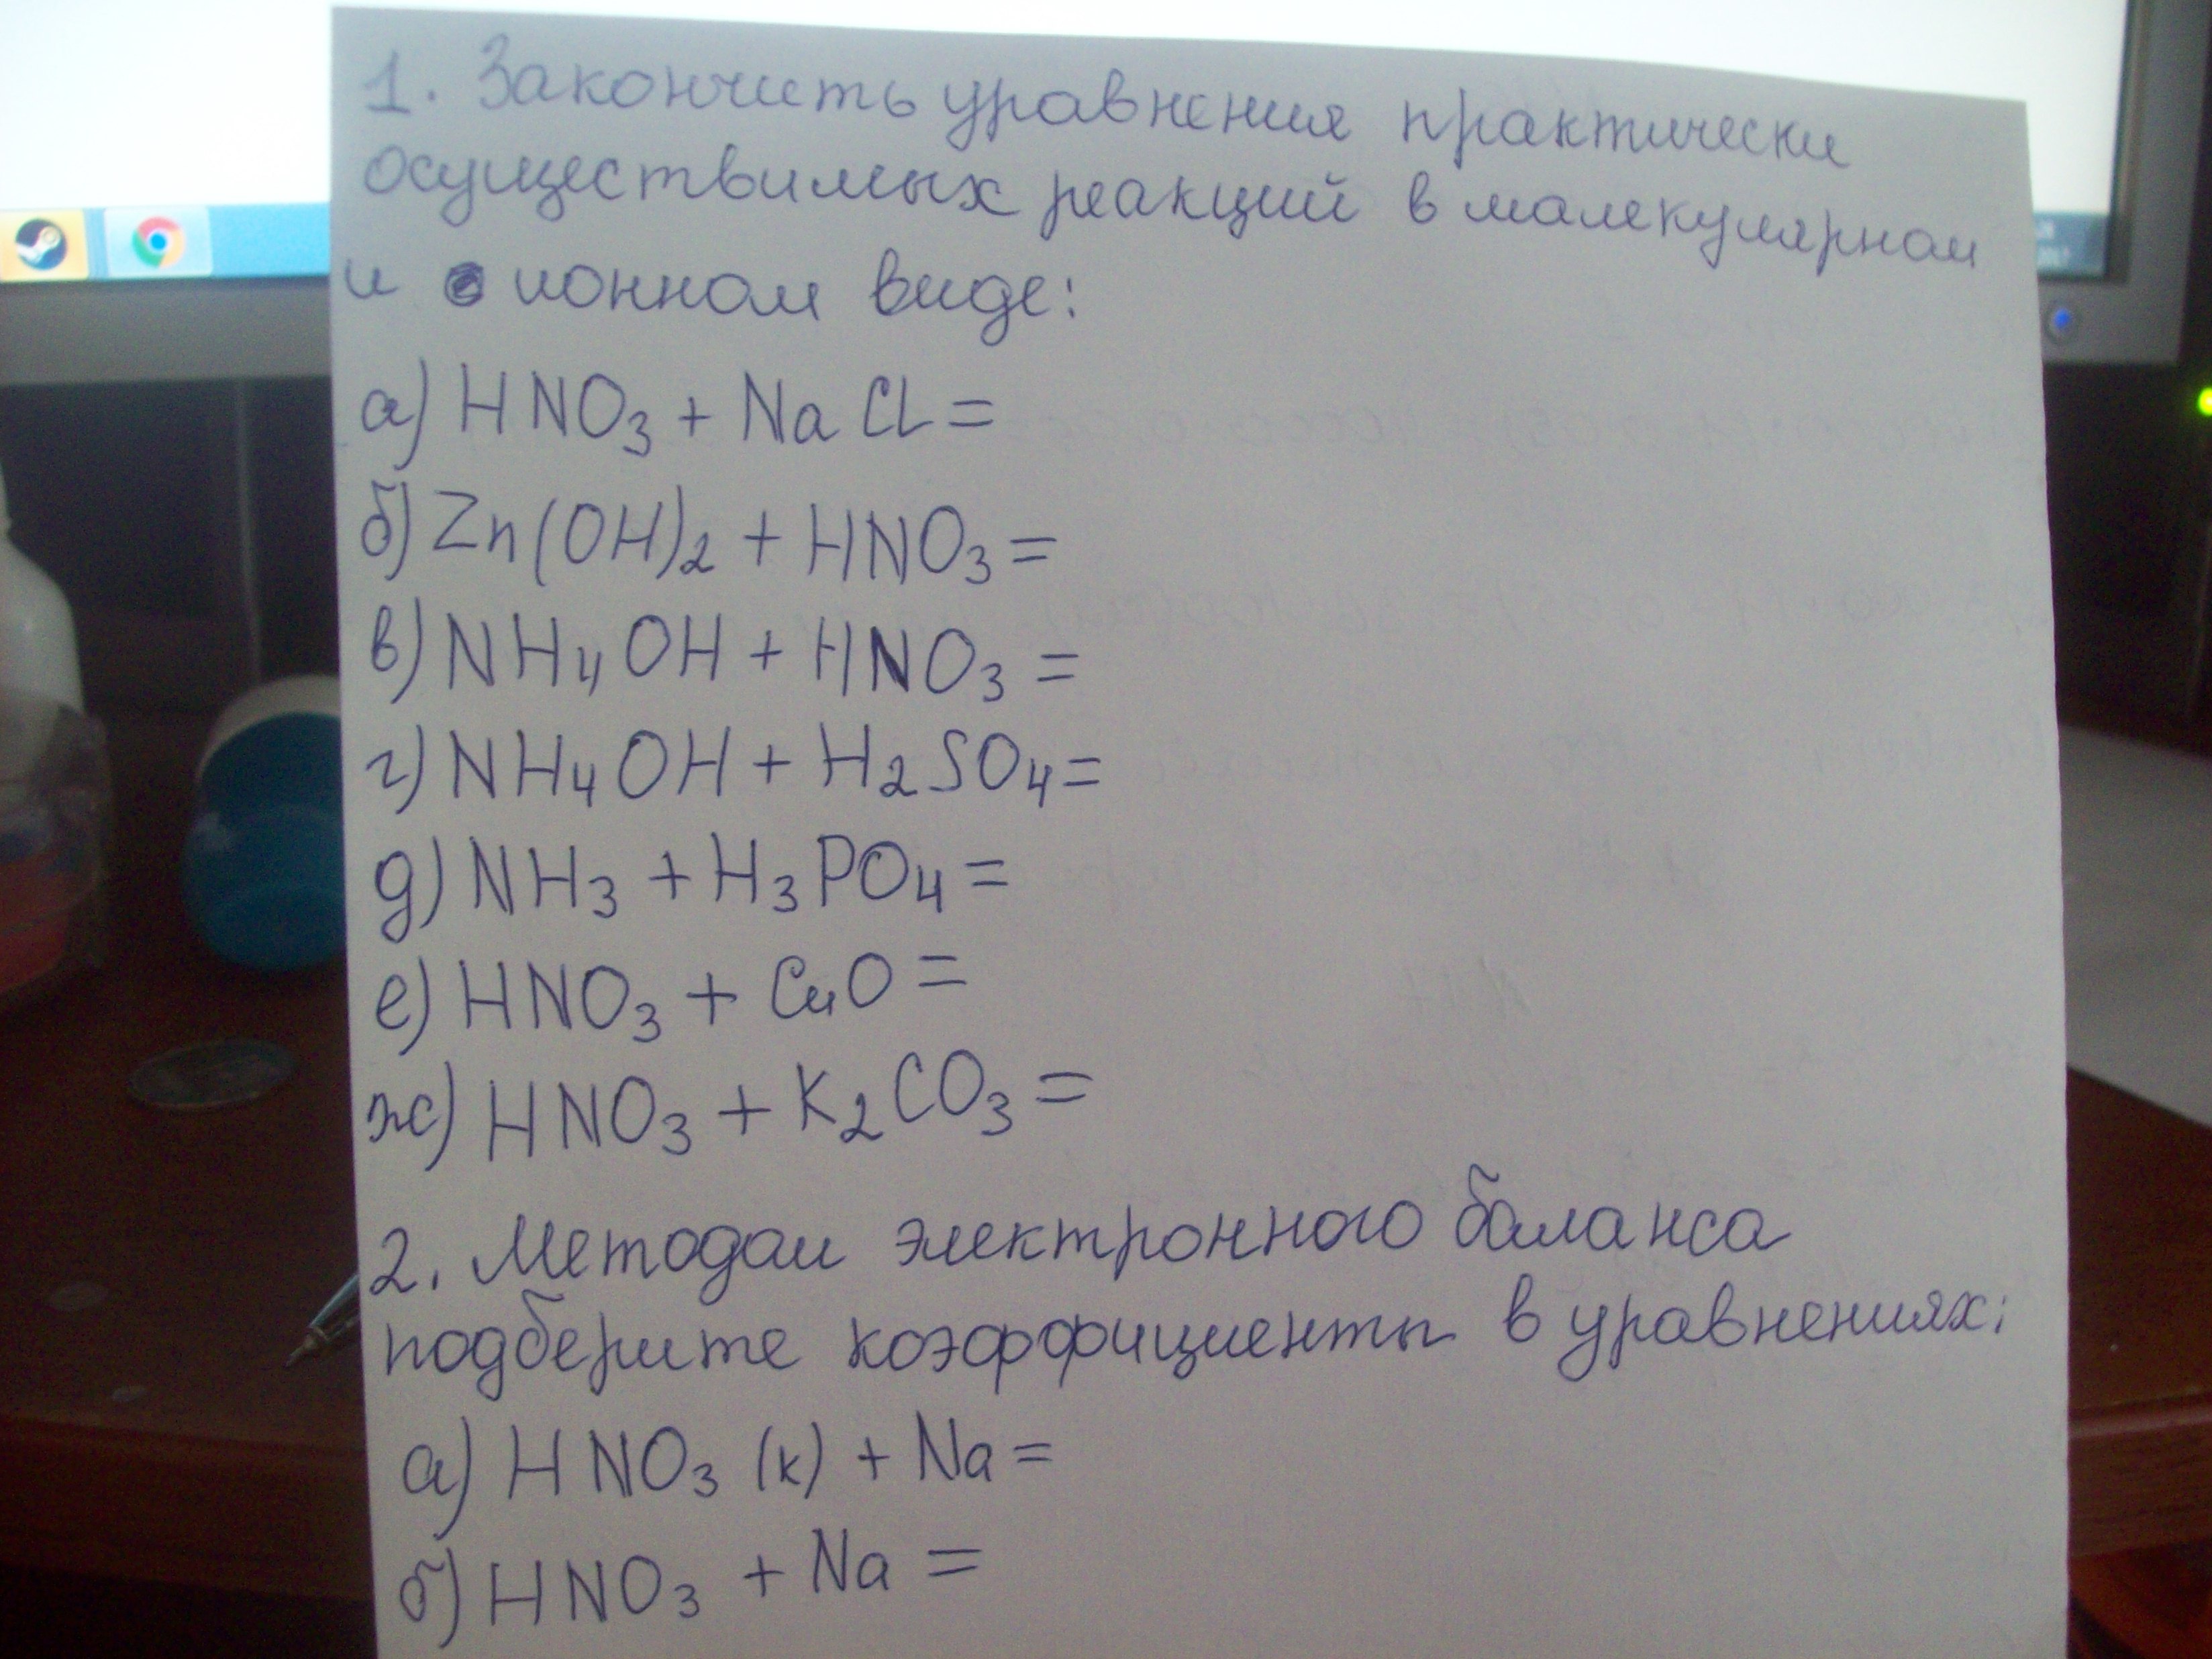 1. Закончить уравнения практически
осуществимых реакций в малекулярном
и ионном виде:
а) HNO₃ + NaCl =
б) Zn(OH)₂ + HNO₃ =
в) NH₄OH + HNO₃ =
г) NH₄OH + H₂SO₄ =
д) NH₃ + H₃PO₄ =
е) HNO₃ + CuO =
ж) HNO₃ + K₂CO₃ =
2. Методом электронного баланса
подберите коэффициенты в уравнениях:
а) HNO₃ (к) + Na =
б) HNO₃ + Na =